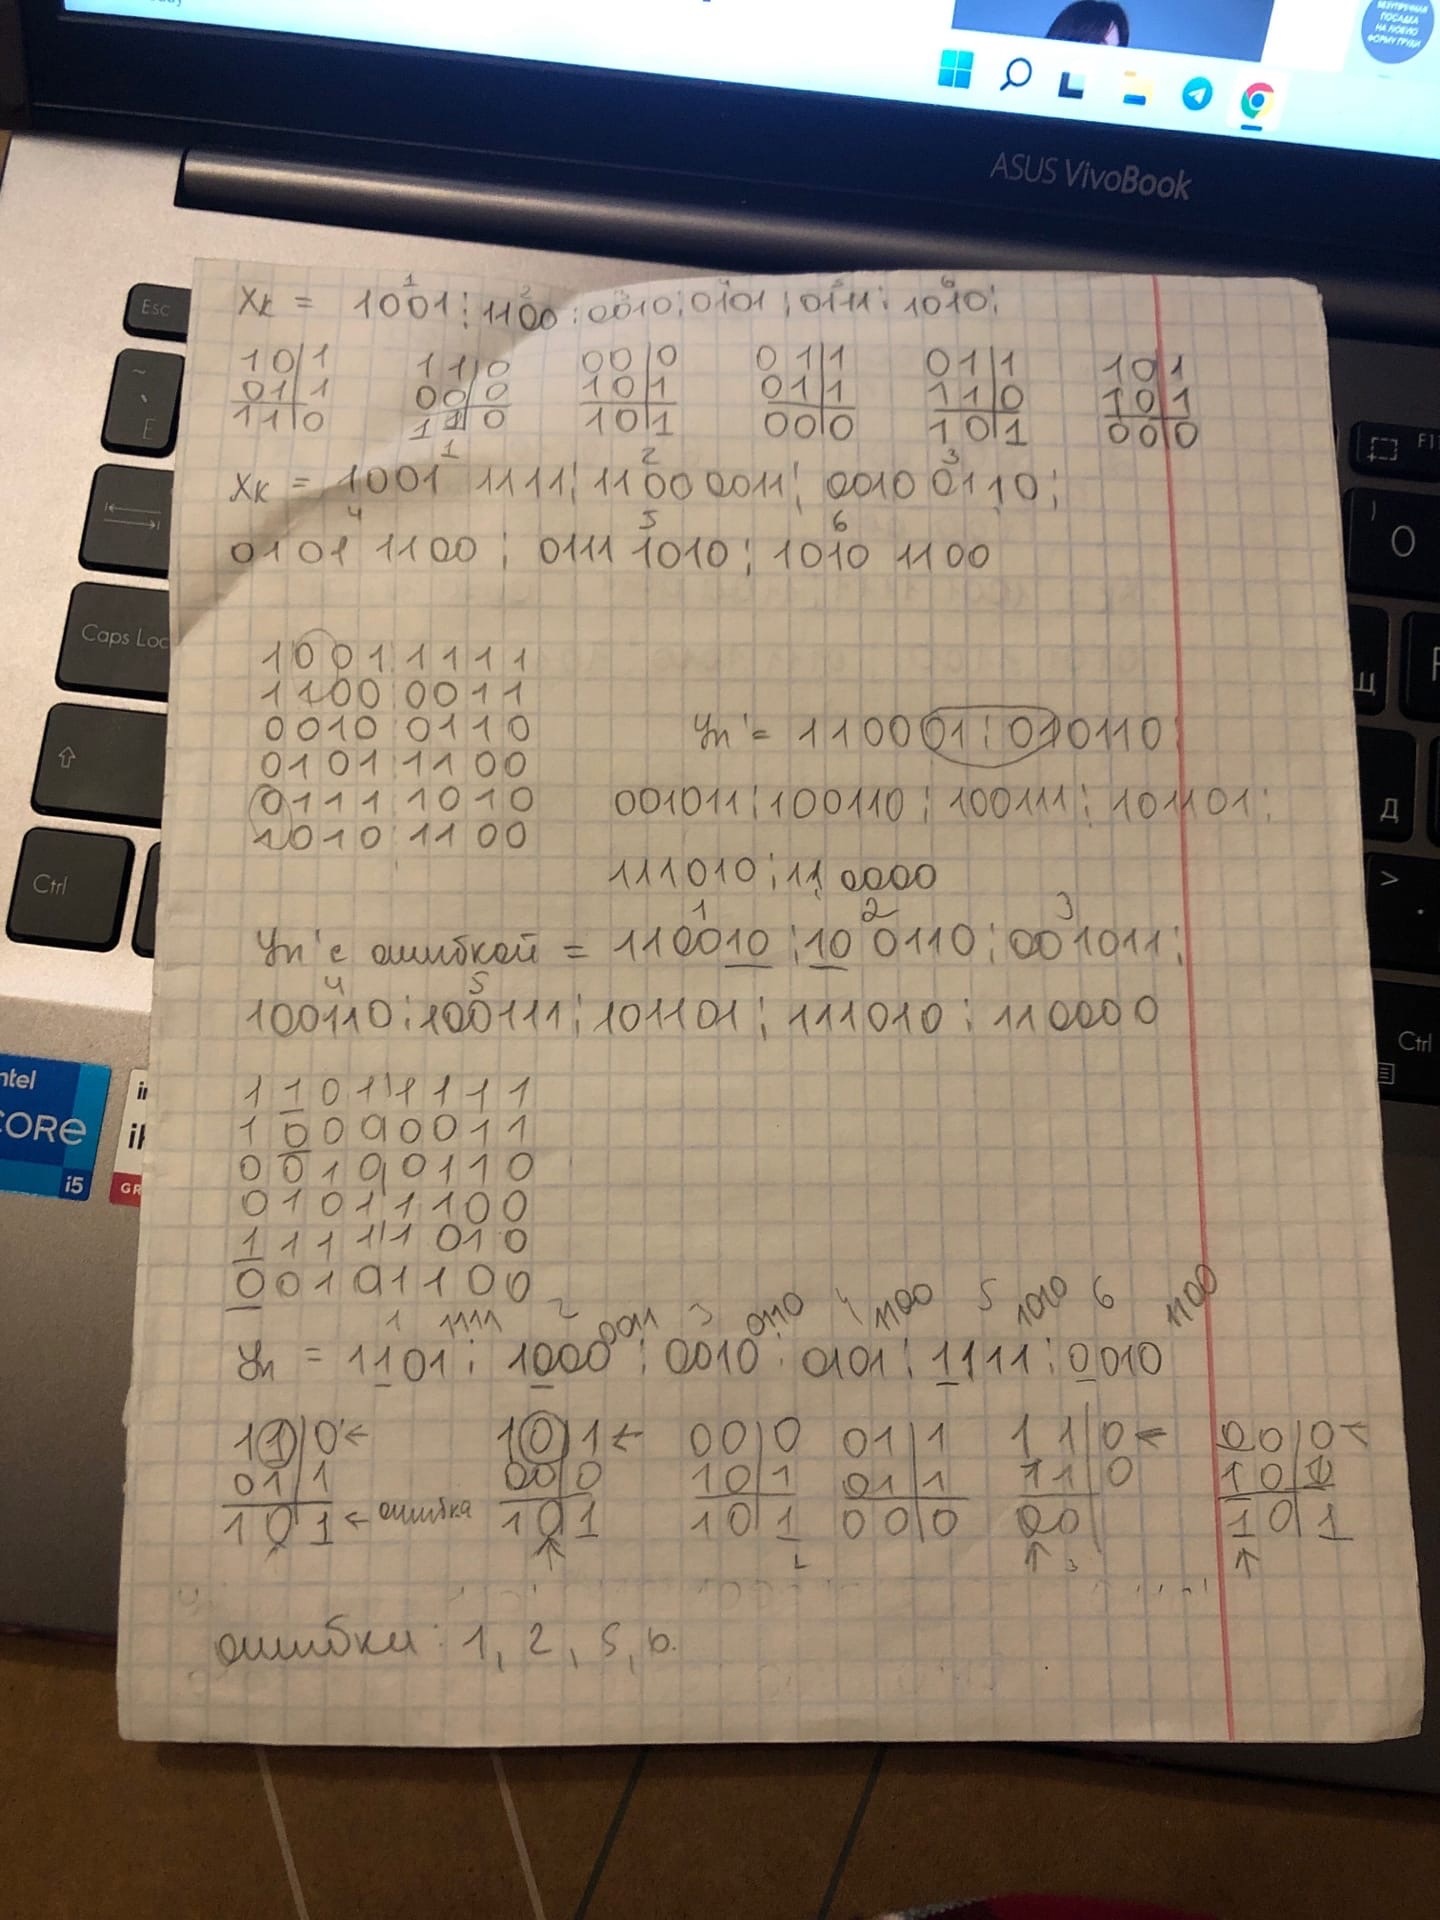 БЕЗУПРЕЧНАЯ
ПОСАДКА
НА ЛЮБУЮ
ФОРМУ ГРУДИ
ASUS VivoBook
Esc
Caps Loc
Ctrl
Ctrl
F11
intel
CORE
i5
Xк = 1001 ; 1100 ; 0010 ; 0101 ; 0111 ; 1010 ;
1 2 3 4 5 6
10|1 11|0 00|0 01|1 01|1 10|1
01|1 00|0 10|1 01|1 11|0 10|1
11|0 11|0 10|1 00|0 10|1 00|0
1 2 3
Xк = 1001 1111 ; 1100 0011 ; 0010 0110 ;
4 5 6
0101 1100 ; 0111 1010 ; 1010 1100
1001 1111
1100 0011
0010 0110
0101 1100
0111 1010
1010 1100
Yп' = 110001 ; 010110 ;
001011 ; 100110 ; 100111 ; 101101 ;
111010 ; 110000
1 2 3
Yп' с ошибкой = 110010 ; 100110 ; 001011 ;
4 5
100110 ; 100111 ; 101101 ; 111010 ; 110000
1101 1111
1000 0011
0010 0110
0101 1100
1111 1010
0010 1100
1 1111 2 0011 3 0110 4 1100 5 1010 6 1100
Yп = 1101 ; 1000 ; 0010 ; 0101 ; 1111 ; 0010
11|0 ← 10|1 ← 00|0 01|1 11|0 ← 00|0 ←
01|1 00|0 10|1 01|1 11|0 10|1
10|1 ← ошибка 10|1 10|1 00|0 00| 10|1
ошибки: 1, 2, 5, 6.